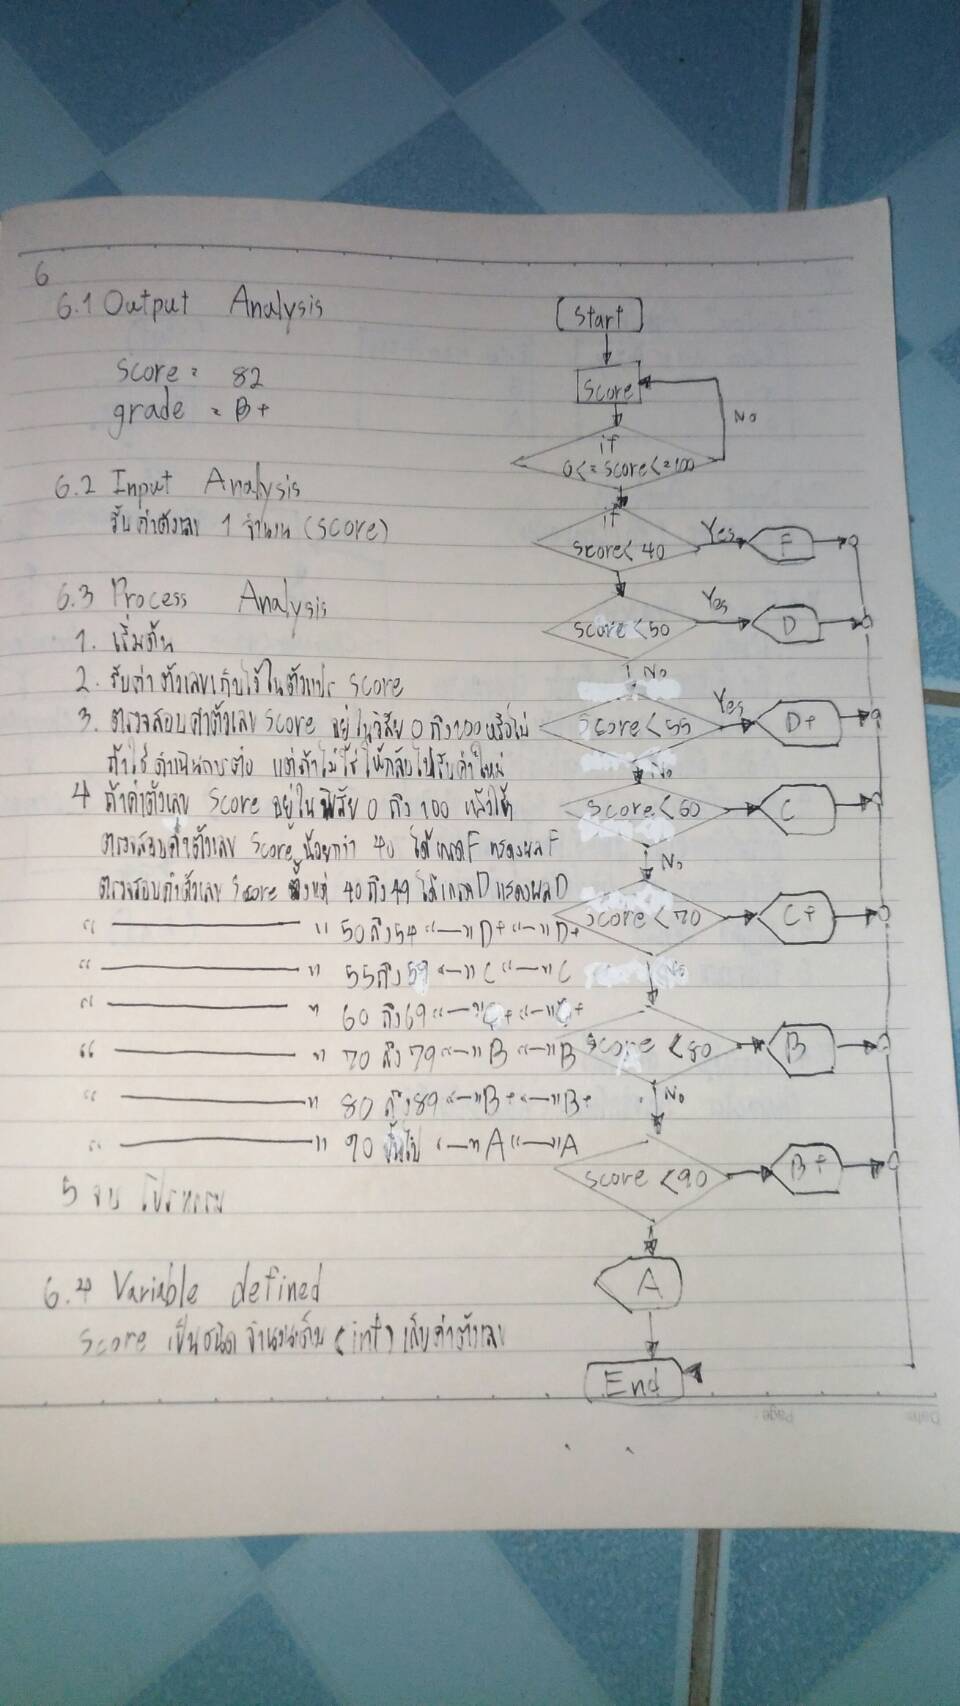 6
6.1 Output Analysis
Score = 82
grade = B+
6.2 Input Analysis
รับค่าตัวเลข 1 จำนวน (score)
6.3 Process Analysis
1. เริ่มต้น
2. รับค่า ตัวเลขเก็บไว้ในตัวแปร score
3. ตรวจสอบค่าตัวเลข score อยู่ในวิสัย 0 ถึง 100 หรือไม่
ถ้าใช่ ดำเนินการต่อ แต่ถ้าไม่ใช่ ให้กลับไปรับค่าใหม่
4 ถ้าค่าตัวเลข Score อยู่ใน พิสัย 0 ถึง 100 แล้วให้
ตรวจสอบค่าตัวเลข Score น้อยกว่า 40 ได้เกรดF แสดงผลF
ตรวจสอบค่าตัวเลข Score ตั้งแต่ 40 ถึง 49 ได้เกรด D แสดงผล D
" ——— " 50 ถึง 54 "—" D+ "—" D+
" ——— " 55 ถึง 59 "—" C "—" C
" ——— " 60 ถึง 69 "—" C+ "—" C+
" ——— " 70 ถึง 79 "—" B "—" B
" ——— " 80 ถึง 89 "—" B+ "—" B+
" ——— " 90 ขึ้นไป "—" A "—" A
5 จบ โปรแกรม
6.4 Variable defined
Score เป็นชนิด จำนวนเต็ม (int) เก็บค่าตัวเลข
Start
Score
No
if
0<=score<=100
if
score< 40
Yes
F
score<50
Yes
D
No
score<55
Yes
D+
No
score<60
C
No
score<70
C+
No
score <80
B
No
score <90
B+
A
End
Page:
Date: